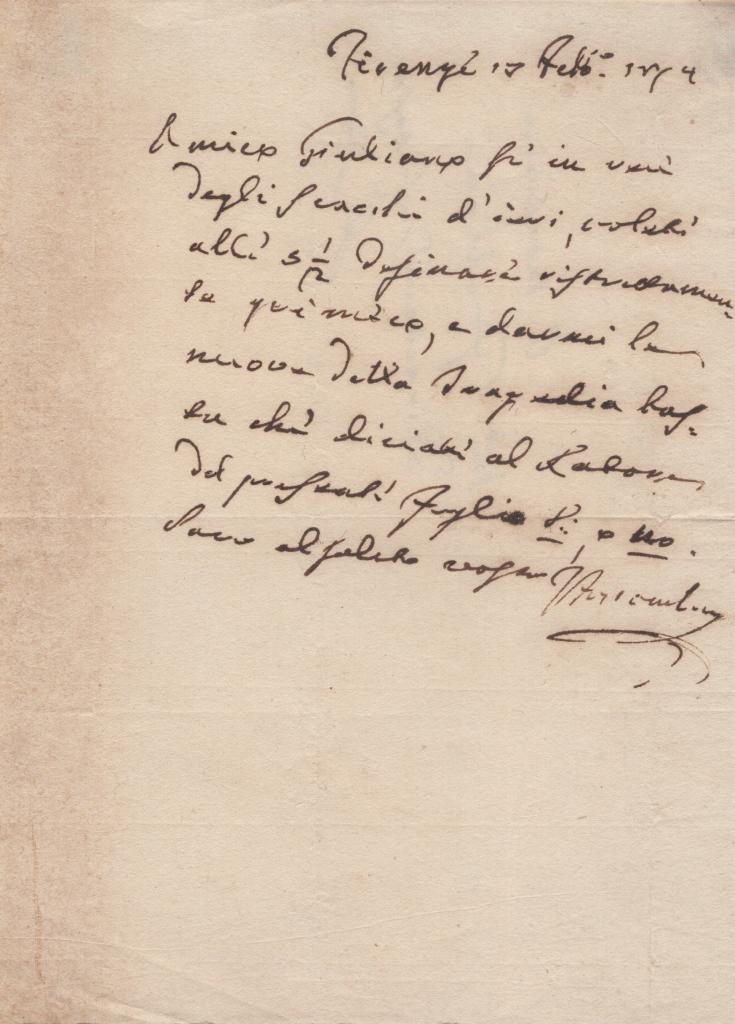 Firenze 17 Febb.o 1874
Amico Giuliano se in veci
degli scacchi d'ieri, voleti
alli 5 1/2 desinare ristrettamen-
te qui meco, e darmi le
nuove della tragedia bas-
ta che diciati al Latore
del presenti foglio Si, o No.
Sono al solito vostro